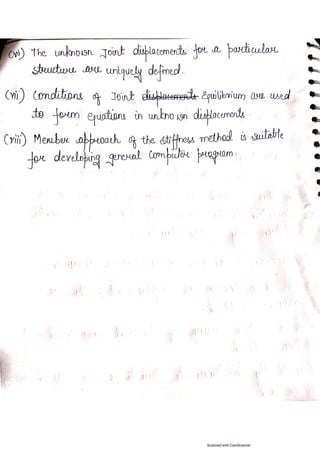 (vi) The unknown Joint displacements for a particular
structure are uniquely defined.
(vii) Conditions of Joint displacements Equilibrium are used
to form equations in unknown displacements.
(viii) Member approach of the stiffness method is suitable
for developing general computer program.
Scanned with CamScanner